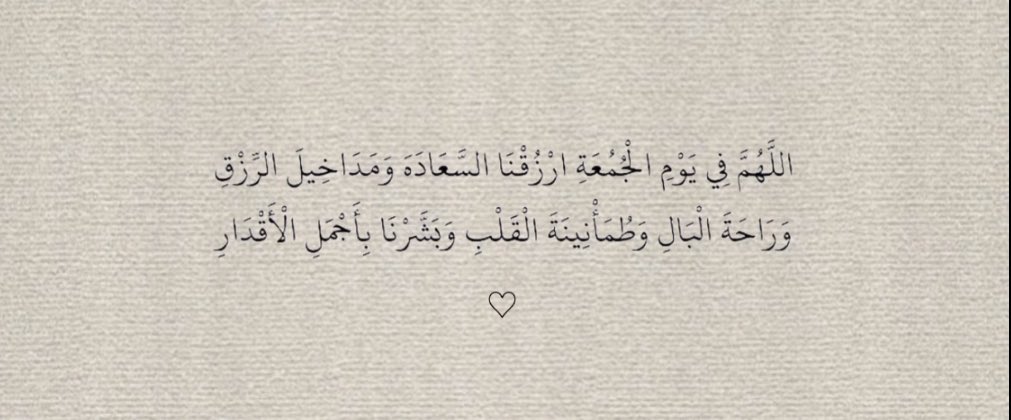 اللَّهُمَّ فِي يَوْمِ الْجُمُعَةِ ارْزُقْنَا السَّعَادَه وَمَدَاخِيلَ الرِّزْقِ
وَرَاحَةَ الْبَالِ وَطُمَأْنِينَةَ الْقَلْبِ وَبَشَّرْنَا بِأَجْمَلِ الْأَقْدَارِ
♡